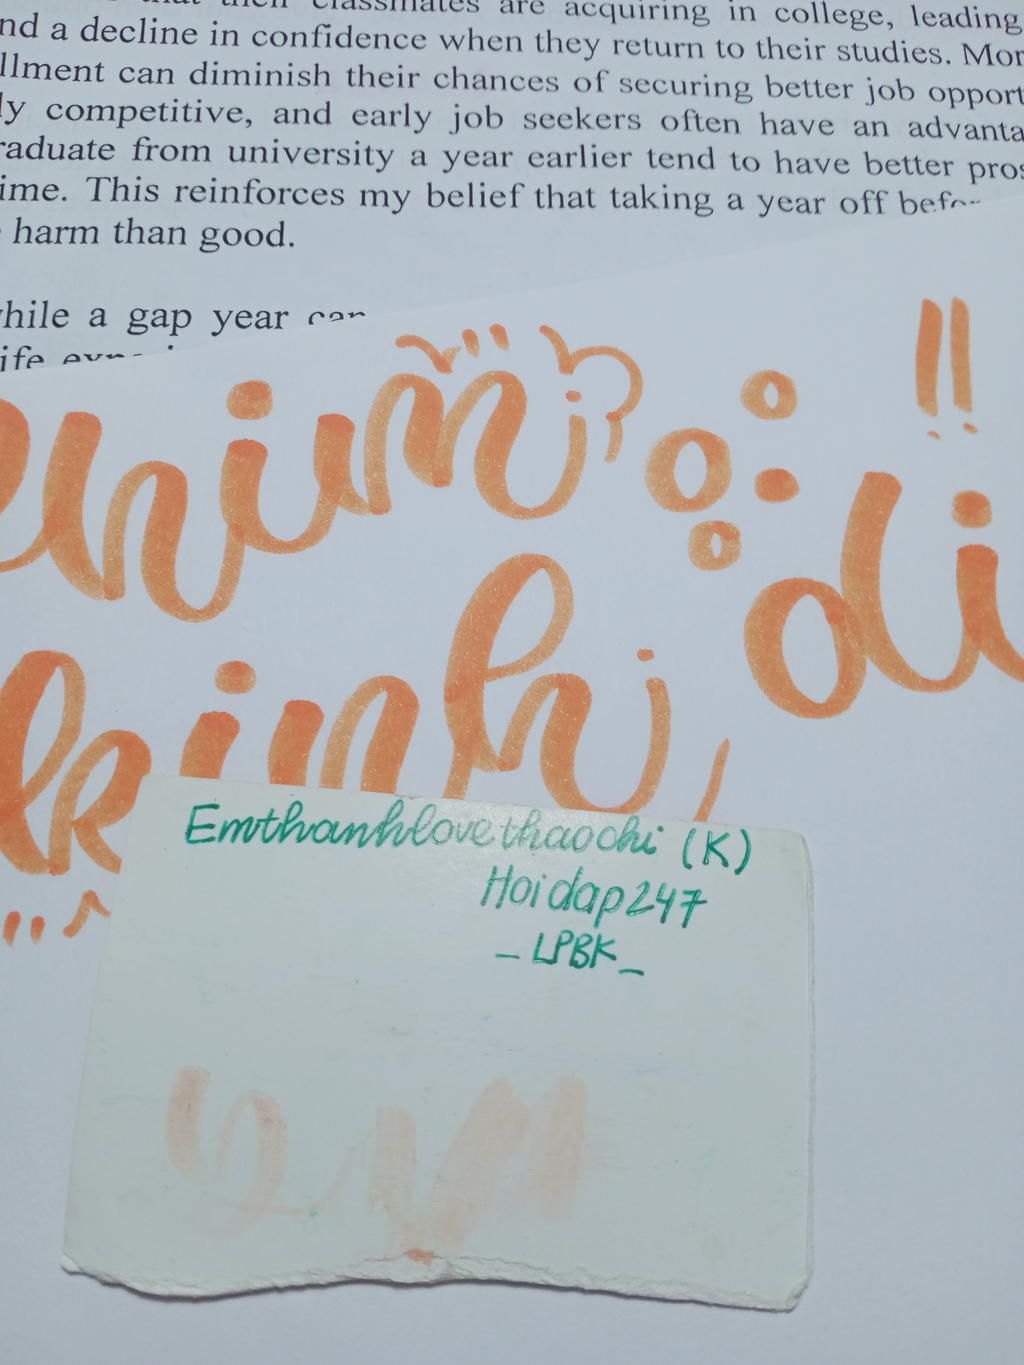 classmates are acquiring in college, leading
nd a decline in confidence when they return to their studies. Mor
llment can diminish their chances of securing better job opport
ly competitive, and early job seekers often have an advanta
raduate from university a year earlier tend to have better pros
ime. This reinforces my belief that taking a year off
harm than good.
hile a gap year can
ife
him
di
kinh
Emthanhlovethaochi (K)
Hoidap247
_ LPBK _